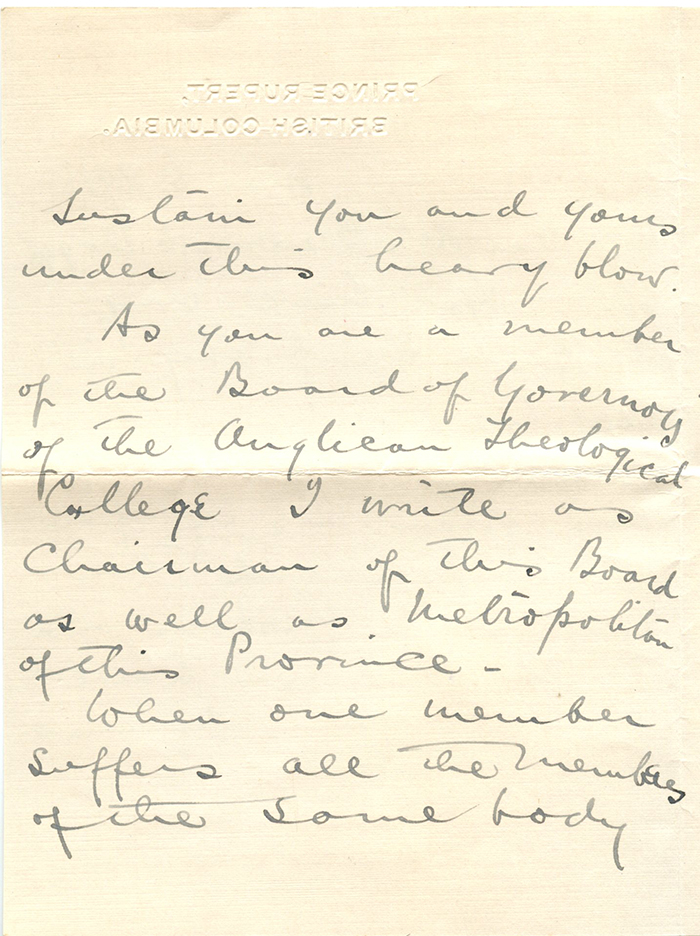 PRINCE RUPERT,
BRITISH COLUMBIA.
sustain you and yours
under this heavy blow.
As you are a member
of the Board of Governors
of the Anglican Theological
College I write as
Chairman of this Board
as well as Metropolitan
of this Province -
When one member
suffers all the members
of the same body